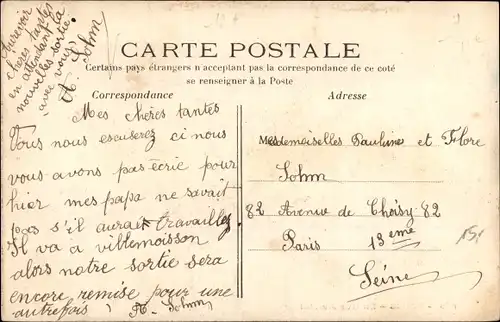 Aurevoir
chères tantes
en attendant la
nouvelles sortie
avec vous
A Sohm
CARTE POSTALE
Certains pays étrangers n'acceptant pas la correspondance de ce coté
se renseigner à la Poste
Correspondance
Mes chères tantes
Vous nous escuserez ci nous
vous avons pas écrie pour
hier mes papa ne savait
pas s'il aurait travaillez
Il va a villemoisson
alors notre sortie sera
encore remise pour une
autrefois A. Sohm
Adresse
Mesdemoiselles Pauline et Flore
Sohm
82 Avenue de Choisy 82
Paris 13eme
Seine